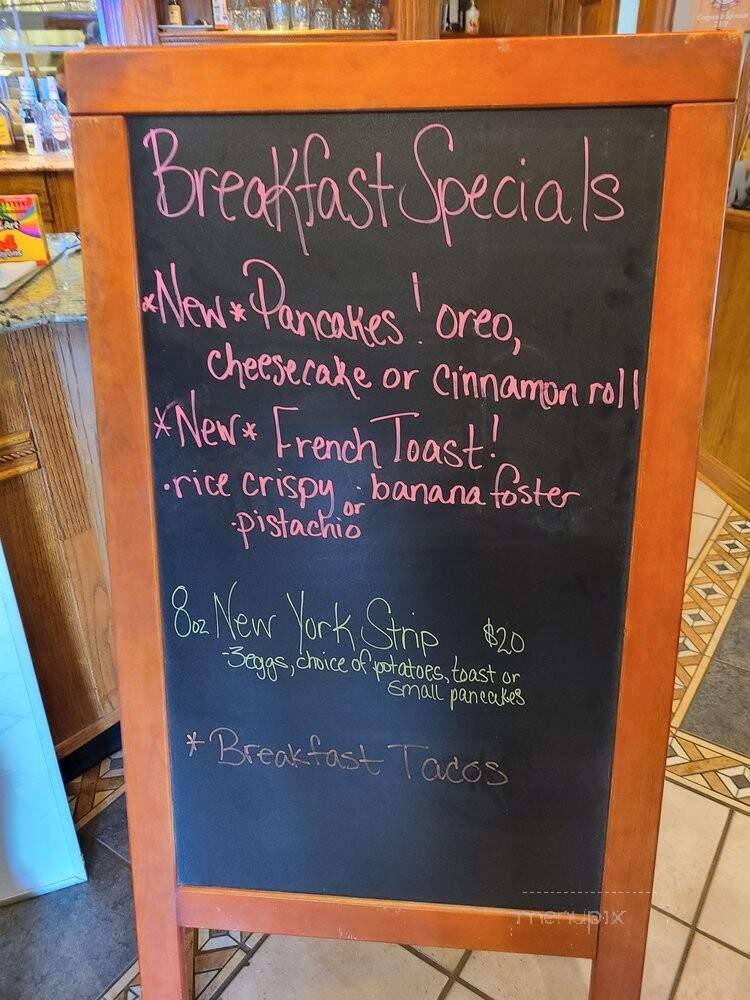 Breakfast Specials
*New* Pancakes! oreo,
cheesecake or cinnamon roll
*New* French Toast!
·rice crispy · banana foster
or
·pistachio
8oz New York Strip $20
-3eggs, choice of potatoes, toast or
small pancakes
* Breakfast Tacos
menupix
Art